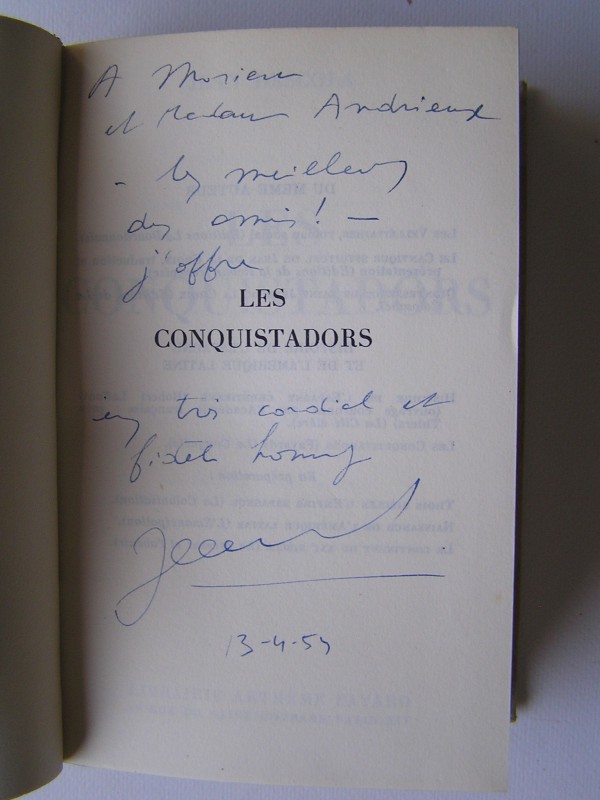 A Monsieur
et Madame Andrieux
- les meilleurs
des amis! -
j'offre
LES
CONQUISTADORS
en très cordial et
fidèle hommage
13-4-54